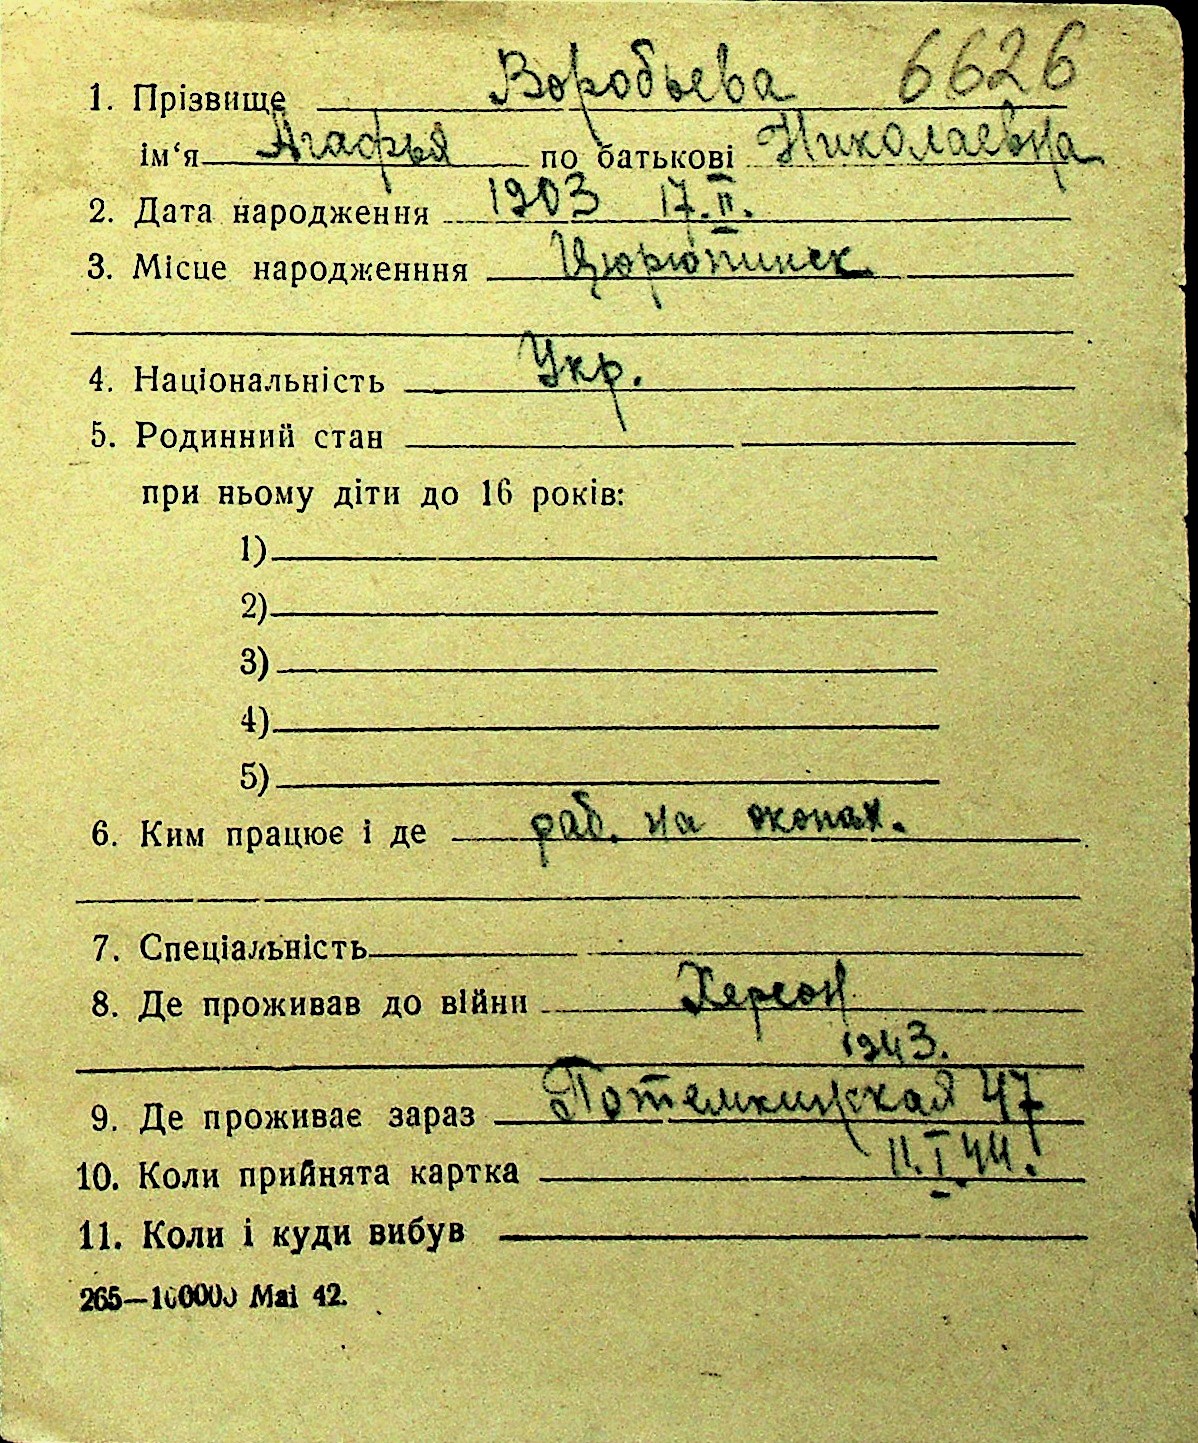 6626
1. Прізвище Воробьева
ім‘я Агафья по батькові Николаевна
2. Дата народження 1903 17.II.
3. Місце народженння Цюрюпинск
4. Національність Укр.
5. Родинний стан
при ньому діти до 16 років:
1)
2)
3)
4)
5)
6. Ким працює і де раб. на окопах.
7. Спеціальність
8. Де проживав до війни Херсон
1943.
9. Де проживає зараз Потемкинская 47
10. Коли прийнята картка 11.I.44.
11. Коли і куди вибув
265—100000 Mai 42.